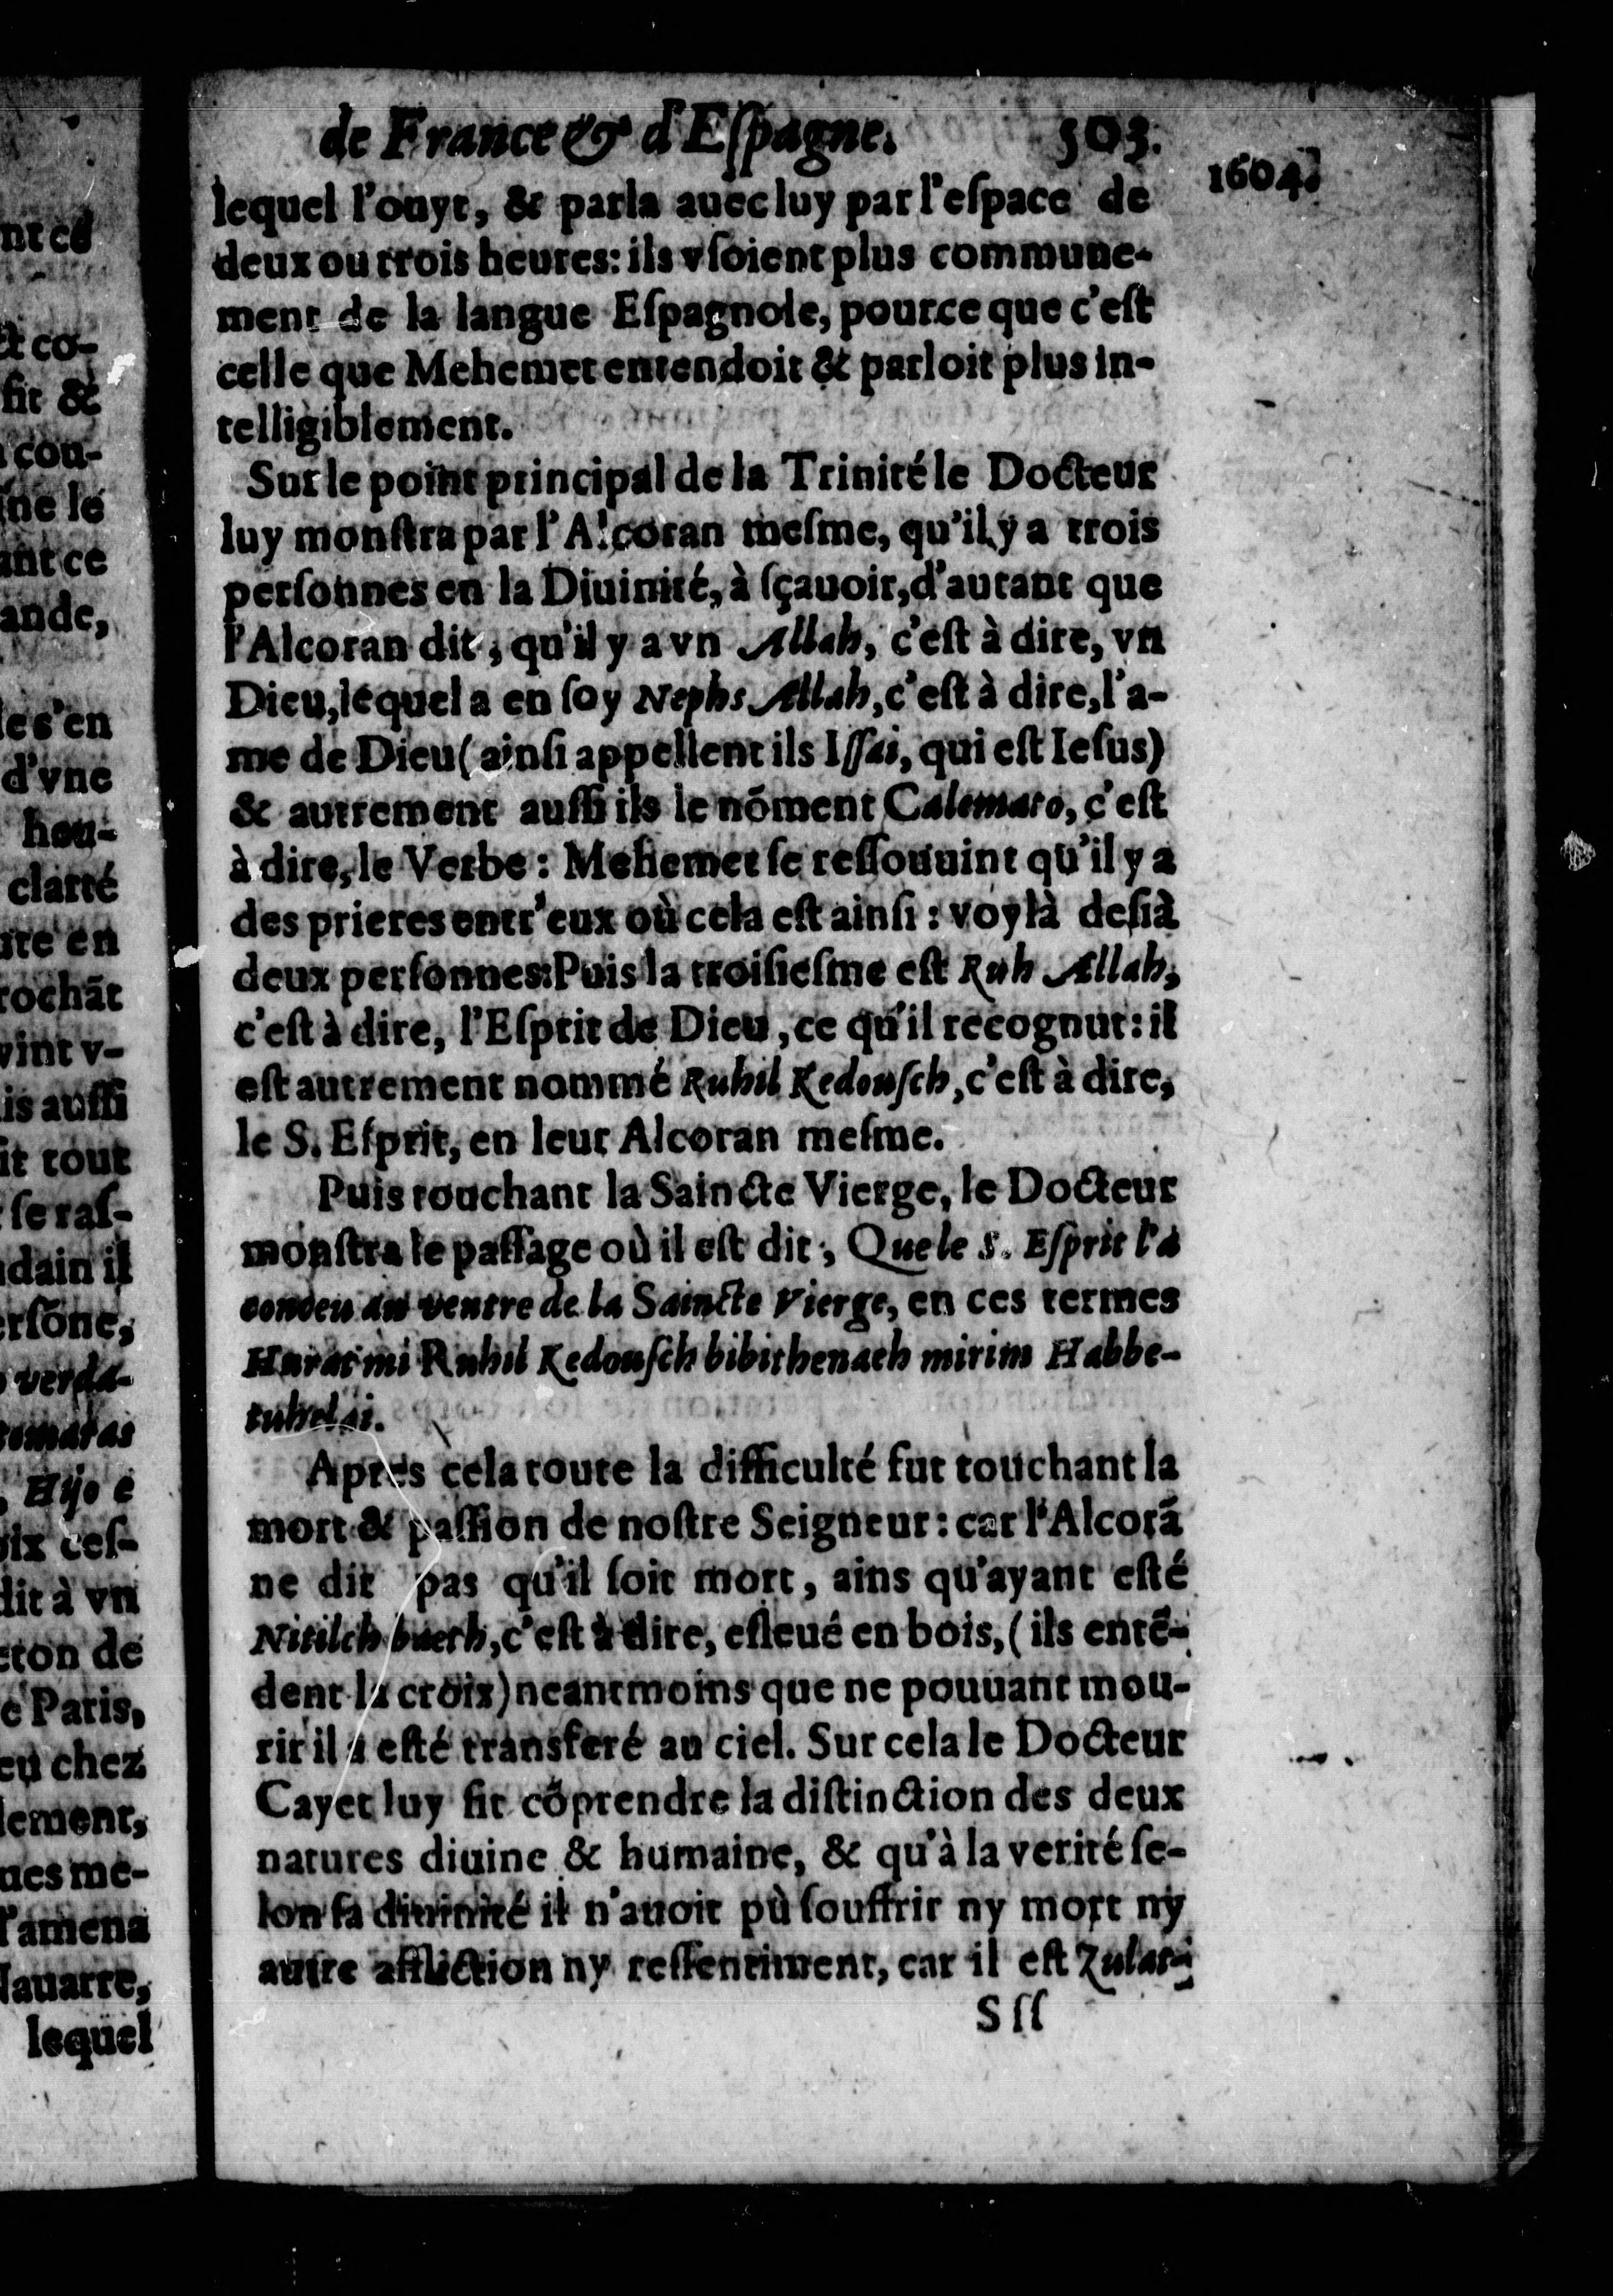 de France & d'Eſpagne. 503.
1604.
lequel l'ouyt, & parla auec luy par l'eſpace de
deux ou trois heures: ils vſoient plus commune-
ment de la langue Eſpagnole, pource que c'eſt
celle que Mehemet entendoit & parloit plus in-
telligiblement.
Sur le point principal de la Trinité le Docteur
luy monſtra par l'Alcoran meſme, qu'il y a trois
perſonnes en la Diuinité, à ſçauoir, d'autant que
l'Alcoran dit, qu'il y a vn Allah, c'eſt à dire, vn
Dieu, lequel a en ſoy Nephs Allah, c'eſt à dire, l'a-
me de Dieu (ainſi appellent ils Iſſai, qui eſt Ieſus)
& autrement auſſi ils le nõment Calemato, c'eſt
à dire, le Verbe: Mehemet ſe reſſouuint qu'il y a
des prieres entr'eux où cela eſt ainſi: voylà deſià
deux perſonnes: Puis la troiſieſme eſt Ruh Allah,
c'eſt à dire, l'Eſprit de Dieu, ce qu'il recognut: il
eſt autrement nommé Ruhil Kedouſch, c'eſt à dire,
le S. Eſprit, en leur Alcoran meſme.
Puis touchant la Saincte Vierge, le Docteur
monſtra le paſſage où il eſt dit, Que le S. Eſprit l'a
conceu au ventre de la Saincte Vierge, en ces termes
Harat mi Ruhil Kedouſch bibithenaeh mirim Habbe-
tuhelai.
Apres cela toute la difficulté fut touchant la
mort & paſſion de noſtre Seigneur: car l'Alcorã
ne dit pas qu'il ſoit mort, ains qu'ayant eſté
Nitilch buerh, c'eſt à dire, eſleué en bois, (ils entẽ-
dent la croix) neantmoins que ne pouuant mou-
rir il a eſté transferé au ciel. Sur cela le Docteur
Cayet luy fit cõprendre la diſtinction des deux
natures diuine & humaine, & qu'à la verité ſe-
lon ſa diuinité il n'auoit pù ſouffrir ny mort ny
autre affliction ny reſſentiment, car il eſt Zulat-
Sſſ
nt ce
& co-
fit &
cou-
ne le
ant ce
ande,
le s'en
d'vne
hou-
clarté
en
rochãt
vint v-
is auſſi
it tout
ſe raſ-
dain il
rſõne,
verda-
tomaras
Hijo e
ceſ-
dit à vn
eton de
e Paris,
eu chez
lement,
ues me-
l'amena
Nauarre,
lequel